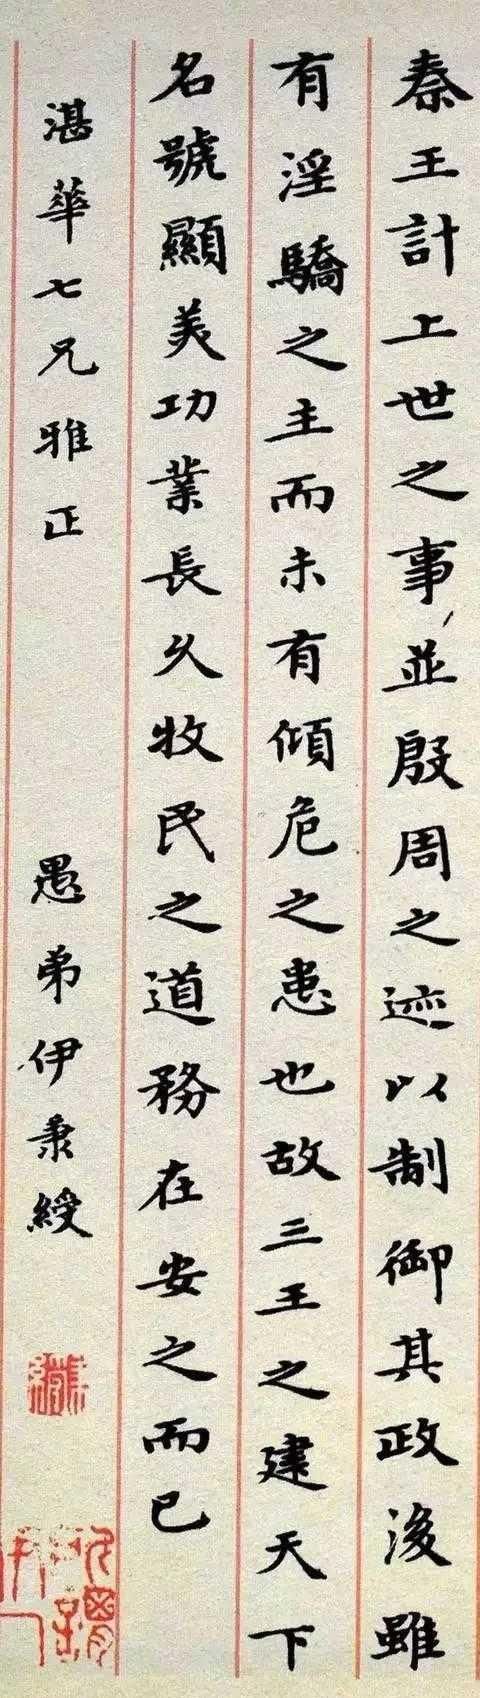 秦王計上世之事並殷周之迹以制御其政後雖
有淫驕之主而未有傾危之患也故三王之建天下
名號顯美功業長久牧民之道務在安之而已
湛華七兄雅正 愚弟伊秉綬